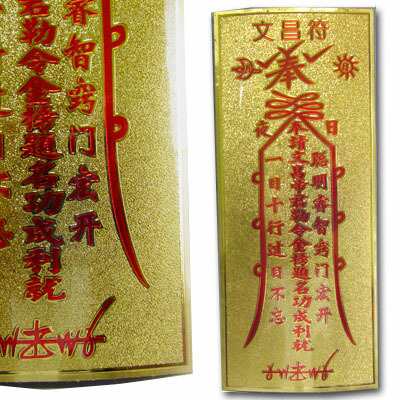 睿智窍门宏开
君勒令金榜題名功成利就
文昌符
奉
日
夜
聪明睿智窍门宏开
請文昌帝君勒令金榜題名功成利就
一目十行过目不忘